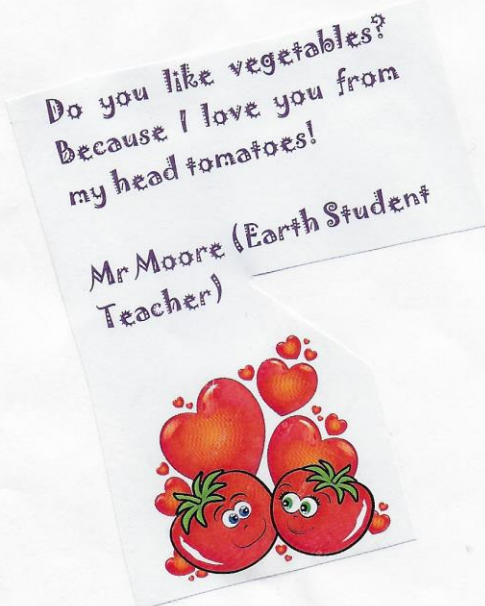 Do you like vegetables?
Because I love you from
my head tomatoes!
Mr Moore (Earth Student
Teacher)